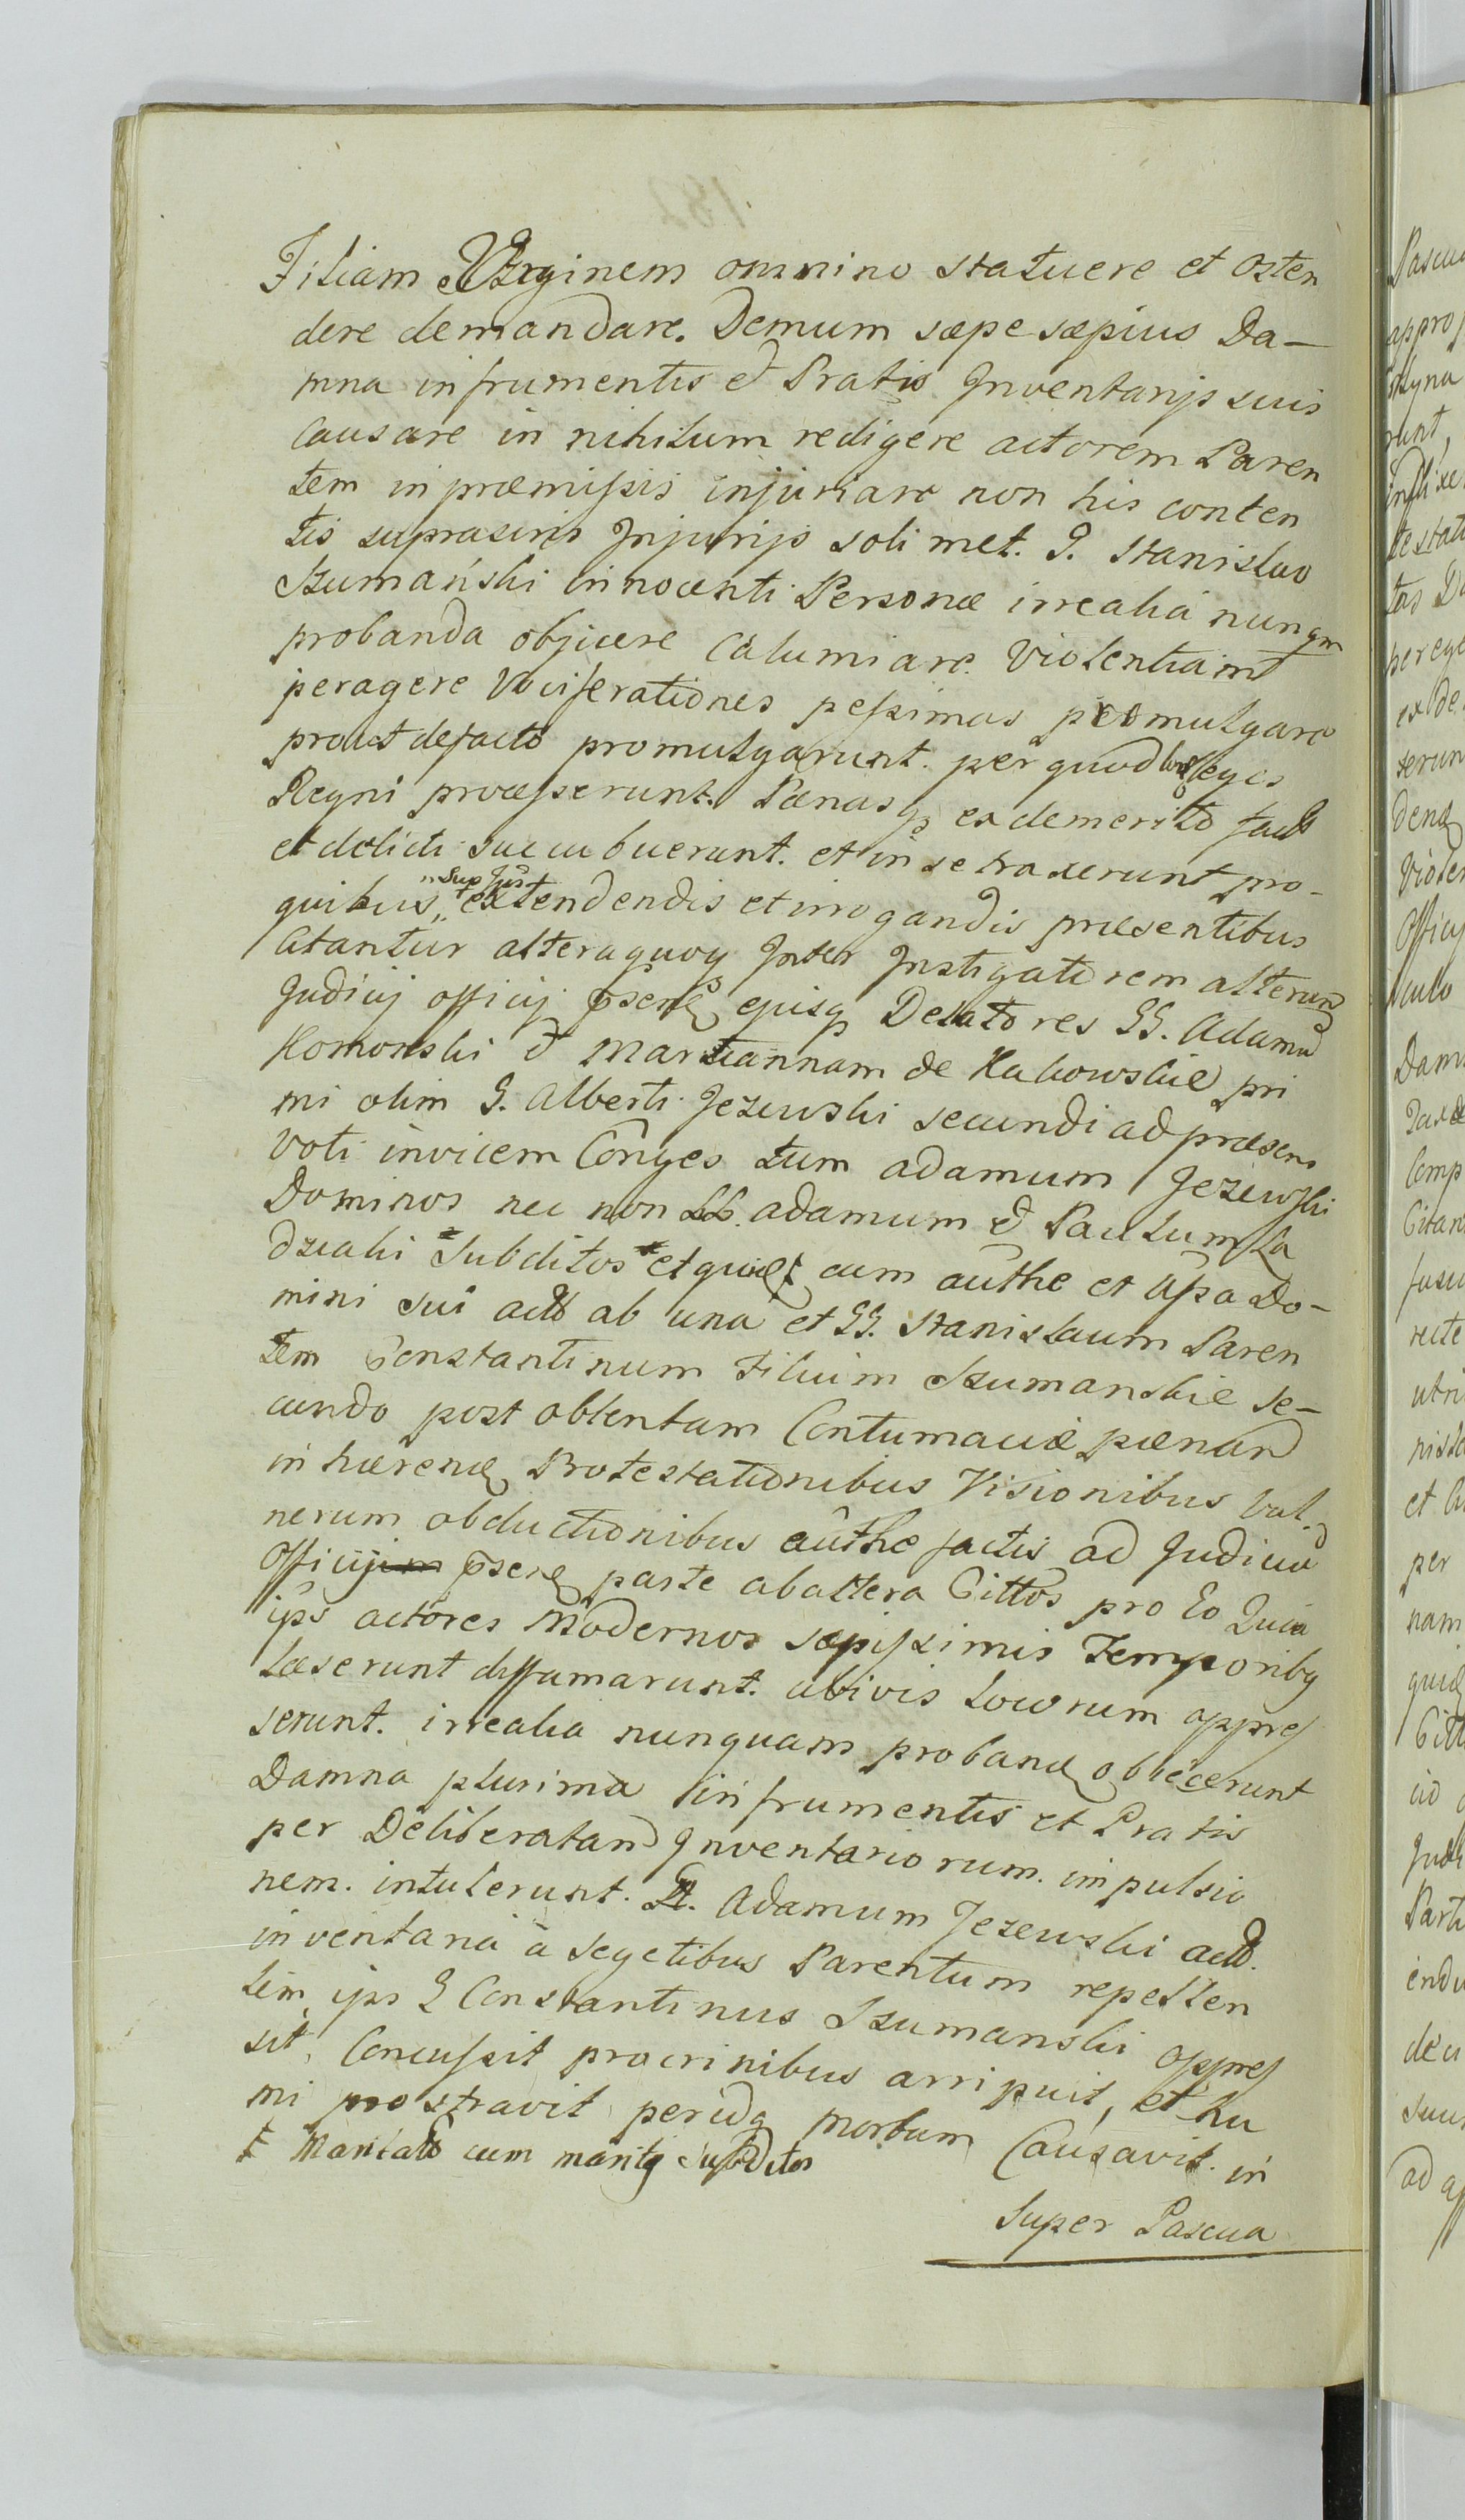 Filiam Virginem omnino statuere et osten
dere demandare. Demum sæpe sæpius Da-
mna in frumentis et Pratis Inventarijs suis
Causare in nihilum redigere actorem Paren
tem in præmissis injuriare non his conten
tis Injurijs soli met. G. Stanislao
Szumański innocenti Personæ irrealia nunqm
probanda objicere Calumiare Violentiam
peragere Vociferationes pessimas promulgare
prout defacto promulgarunt. per quod leges
Regni præesserunt. Pænasq ex demerito facti
et delicti succubuerunt. et in se traxerunt pro-
quibus extendendis et irrogandis præsentibus
Citantur alteraquoq Inter Instigatorem alterum
Judicij officij pseng ejusq Delatores GG. Adamum
Komorski et Mariannam de Kakowskie pri
mi olim G. Alberti Jezewski secundi ad præsens
Voti invicem Conges tum adamum Jezewski
Dominos nec non LL. adamum et Paulum La
dziahi Subditos et cum authe et Assa Do-
mini sui actt ab una et GG. Stanislaum Paren
tem Constantinum Filium Szumanskie se-
cundo post obtentam Contumaciæ pænam
in hærend Protestationibus Visionibus Vul
nerum obductionibus authe factis ad Judicium
Officij pseng parte ab altera Cittos pro Eo Quia
ips actores Modernos sæpissimis Temporibq
Læserunt diffamarunt. abivis Locorum oppres
serunt. irrealia nunquam proband obiecerunt
Damna plurima in frumentis et Pratis
per Deliberatam Inventariorum impulsio
nem. intulerunt. Adamum Jezewski actt.
inventaria à segetibus Parentum repellen
tem ips G Constantinus Szumanski oppres
sit, Concussit pro crinibus arripuit, et hu
mi prostravit peridq morbum Causavit. in
Mariatt cum maritq Subditos
Super Pascua